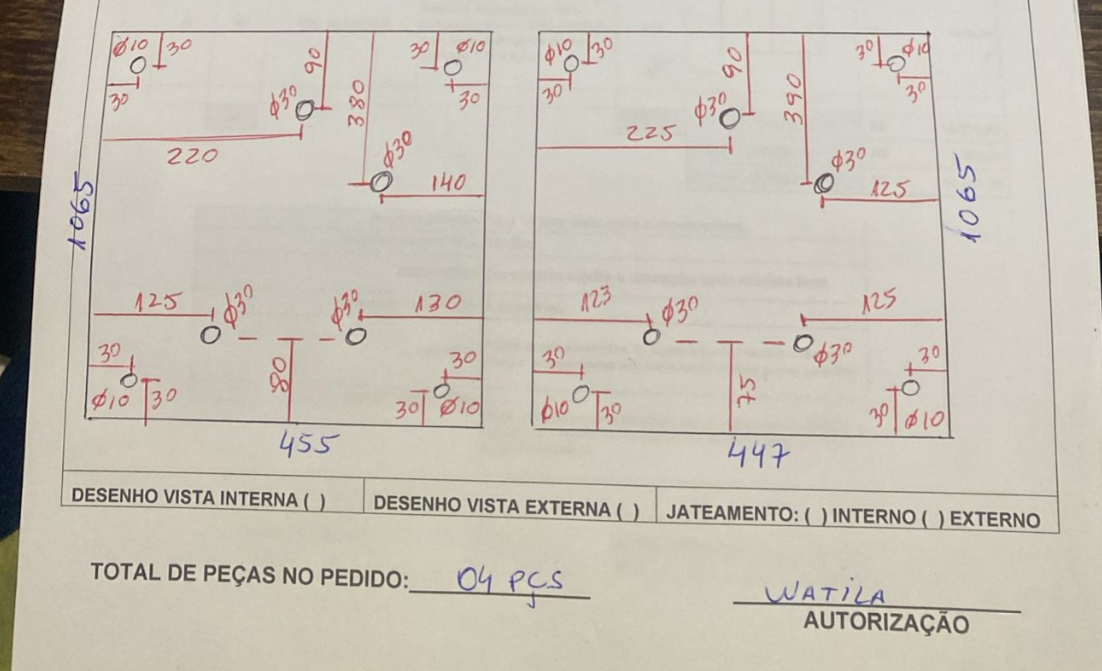 Ø10 30 90 30 Ø10
30 Ø30 380 30
220 Ø30
140
1065
125 Ø30 Ø30 130
30 80 30
Ø10 30 30 Ø10
455
Ø10 30 90 30 Ø10
30 Ø30 390 30
225 Ø30
125
1065
123 Ø30 125
Ø30
30 75 30
Ø10 30 30 Ø10
447
DESENHO VISTA INTERNA ( ) DESENHO VISTA EXTERNA ( ) JATEAMENTO: ( ) INTERNO ( ) EXTERNO
TOTAL DE PEÇAS NO PEDIDO: 04 PÇS
WATILA
AUTORIZAÇÃO